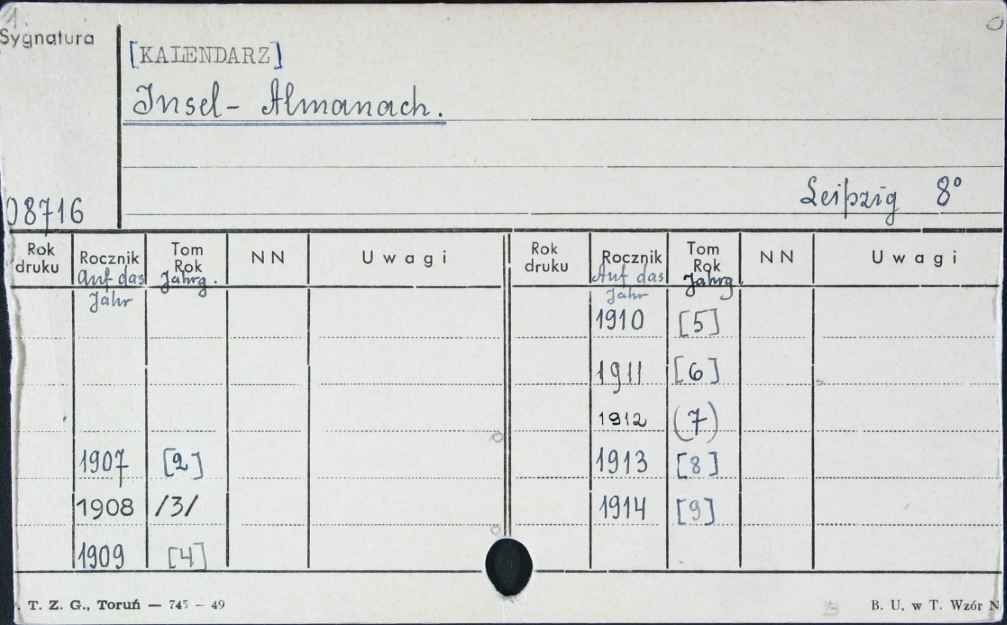 1.
Sygnatura
[KALENDARZ]
Insel- Almanach.
Leipzig 8°
08716
Rok druku Rocznik Tom Rok NN Uwagi Rok druku Rocznik Tom Rok NN Uwagi
Auf das Jahr Jahrg. Auf das Jahr Jahrg
1910 [5]
1911 [6]
1912 (7)
1907 [2] 1913 [8]
1908 /3/ 1914 [9]
1909 [4]
T. Z. G., Toruń — 745 – 49 B. U. w T. Wzór N